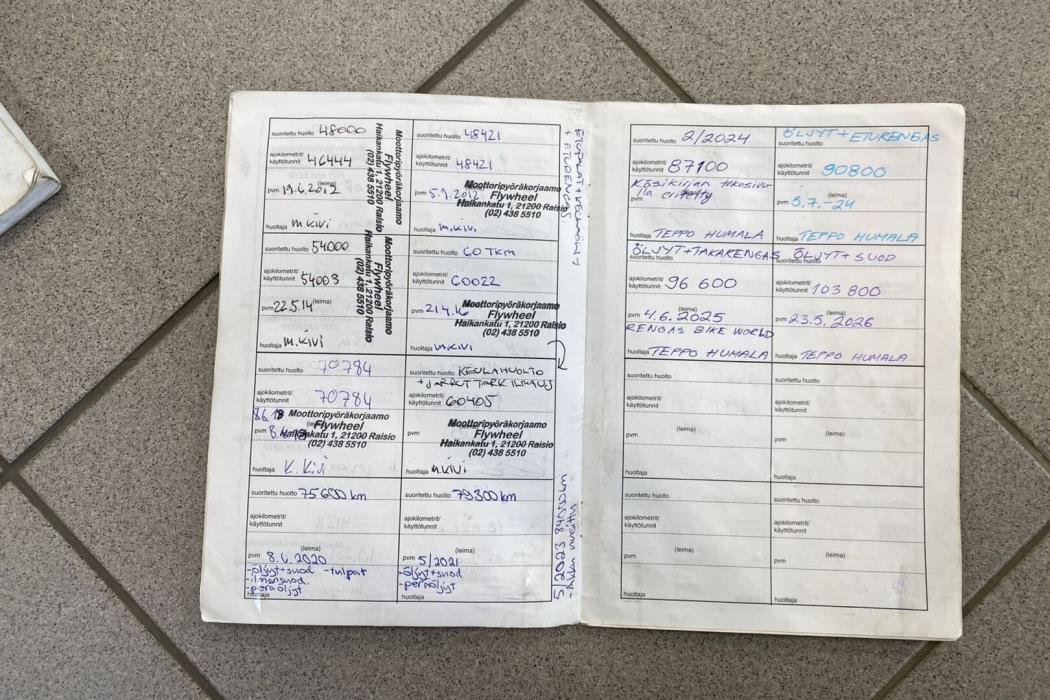 suoritettu huolto 48000
ajokilometrit/
käyttötunnit 46444
pvm 19.6.2012
huoltaja M.Kivi
Moottoripyöräkorjaamo
Flywheel
Haikankatu 1, 21200 Raisio
(02) 438 5510
suoritettu huolto 48421
ajokilometrit/
käyttötunnit 48421
pvm 5.9.2012
Moottoripyöräkorjaamo
Flywheel
Haikankatu 1, 21200 Raisio
(02) 438 5510
huoltaja M.Kivi
+ ETURENGAS.
suoritettu huolto 54000
ajokilometrit/
käyttötunnit 54003
pvm 22.5.14 (leima)
huoltaja M.Kivi
Moottoripyöräkorjaamo
Flywheel
Haikankatu 1, 21200 Raisio
(02) 438 5510
suoritettu huolto 60TKM
ajokilometrit/
käyttötunnit 60022
pvm 21.4.16
Moottoripyöräkorjaamo
Flywheel
Haikankatu 1, 21200 Raisio
(02) 438 5510
huoltaja M.Kivi
suoritettu huolto 70784
ajokilometrit/
käyttötunnit 70784
pvm
Moottoripyöräkorjaamo
Flywheel
Haikankatu 1, 21200 Raisio
(02) 438 5510
huoltaja K.Kivi
suoritettu huolto KEULAHUOLTO
+ JARRUT TARK ILMAUS
ajokilometrit/
käyttötunnit 60405
pvm
Moottoripyöräkorjaamo
Flywheel
Haikankatu 1, 21200 Raisio
(02) 438 5510
huoltaja M.Kivi
suoritettu huolto 75600 km
ajokilometrit/
käyttötunnit
(leima)
pvm 8.6.2020
-öljyt+suod -tulpat
-ilmansuod.
-peräöljyt
huoltaja
suoritettu huolto 79300 km
ajokilometrit/
käyttötunnit
(leima)
pvm 5/2021
-öljyt+suod
-peräöljyt
huoltaja
5/2023 84055km
suoritettu huolto 2/2024
ajokilometrit/
käyttötunnit 87100
Käsikirjan takasivu-
lla eritelty
pvm
huoltaja TEPPO HUMALA
ÖLJYT+ETURENGAS
suoritettu huolto
ajokilometrit/
käyttötunnit 90800
(leima)
pvm 5.7.-24
huoltaja TEPPO HUMALA
ÖLJYT+TAKARENGAS
suoritettu huolto
ajokilometrit/
käyttötunnit 96 600
(leima)
pvm 4.6.2025
RENGAS BIKE WORLD
huoltaja TEPPO HUMALA
ÖLJYT + SUOD
suoritettu huolto
ajokilometrit/
käyttötunnit 103 800
(leima)
pvm 23.5.2026
huoltaja TEPPO HUMALA
suoritettu huolto
ajokilometrit/
käyttötunnit
(leima)
pvm
huoltaja
suoritettu huolto
ajokilometrit/
käyttötunnit
(leima)
pvm
huoltaja
suoritettu huolto
ajokilometrit/
käyttötunnit
(leima)
pvm
huoltaja
suoritettu huolto
ajokilometrit/
käyttötunnit
(leima)
pvm
huoltaja